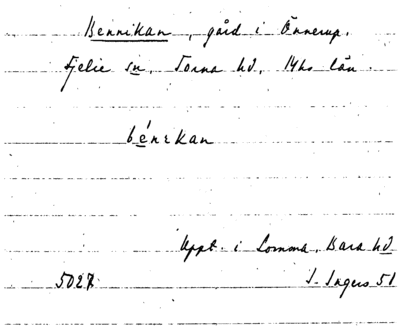 Bennikan, gård i Önnerup.
Fjelie sn. Torna hd, Mhs län.
bénikan
Uppt. i Lomma, Bara hd
5027 I. Ingers 51